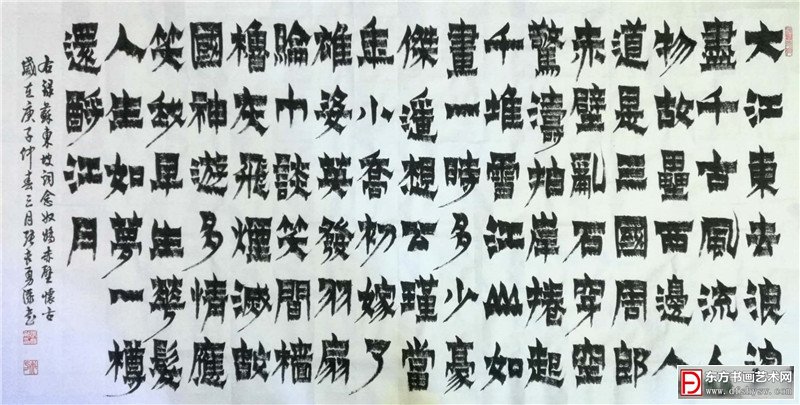 大江東去浪淘
盡千古風流人
物故壘西邊人
道是三國周郎
赤壁亂石穿空
驚濤拍岸捲起
千堆雪江山如
畫一時多少豪
傑遙想公瑾當
年小喬初嫁了
雄姿英發羽扇
綸巾談笑間檣
櫓灰飛煙滅故
國神遊多情應
笑我早生華髮
人生如夢一樽
還酹江月
右錄蘇東坡詞念奴嬌赤壁懷古
歲在庚子仲春三月
东方书画艺术网
www.dfshysw.com